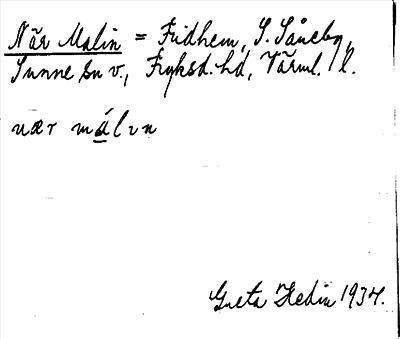 När Malin = Fridhem, S. Såneby,
Sunne sn v., Fryksd. hd, Värml. l.
nær málɩn
Greta Hedin 1934.